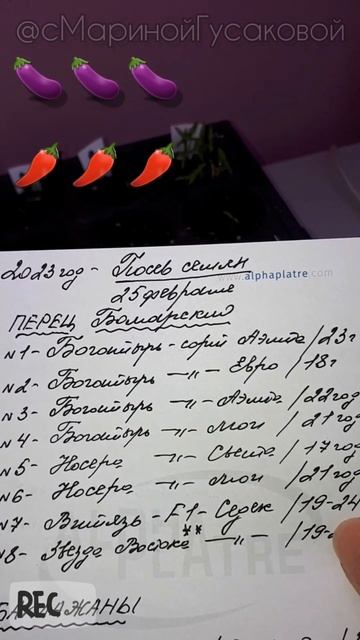 @сМаринойГусаковой
2023 год - Посев семян
www.alphaplatre.com
25 февраля
ПЕРЕЦ Болгарский
№1 - Богатырь - сорт Аэлита / 23 г
№2 - Богатырь —„— Евро / 18 г
№3 - Богатырь —„— Аэлита / 22 год
№4 - Богатырь —„— мои / 21 год
№5 - Носера —„— Свита / 17 год
№6 - Носера —„— мои / 21 год
№7 - Витязь - F1 - Седек / 19-24
№8 - Звезда Востока ** —„— / 19-
ALPHA
PLATRE
REC
БАКЛАЖАНЫ